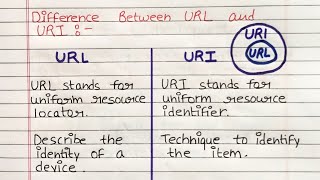 Difference Between URL and
URI :-
URL
URL stands for
uniform resource
locator.
Describe the
identity of a
device.
URI
URI stands for
uniform resource
identifier.
Technique to identify
the item.
URI
URL